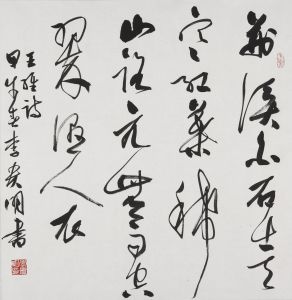 荊溪白石出天
寒紅葉稀
山路元無雨空
翠濕人衣
王維詩
李明書